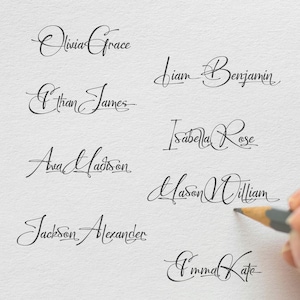 Olivia Grace
Liam Benjamin
Ethan James
Isabella Rose
Ava Madison
Mason William
Jackson Alexander
Emma Kate